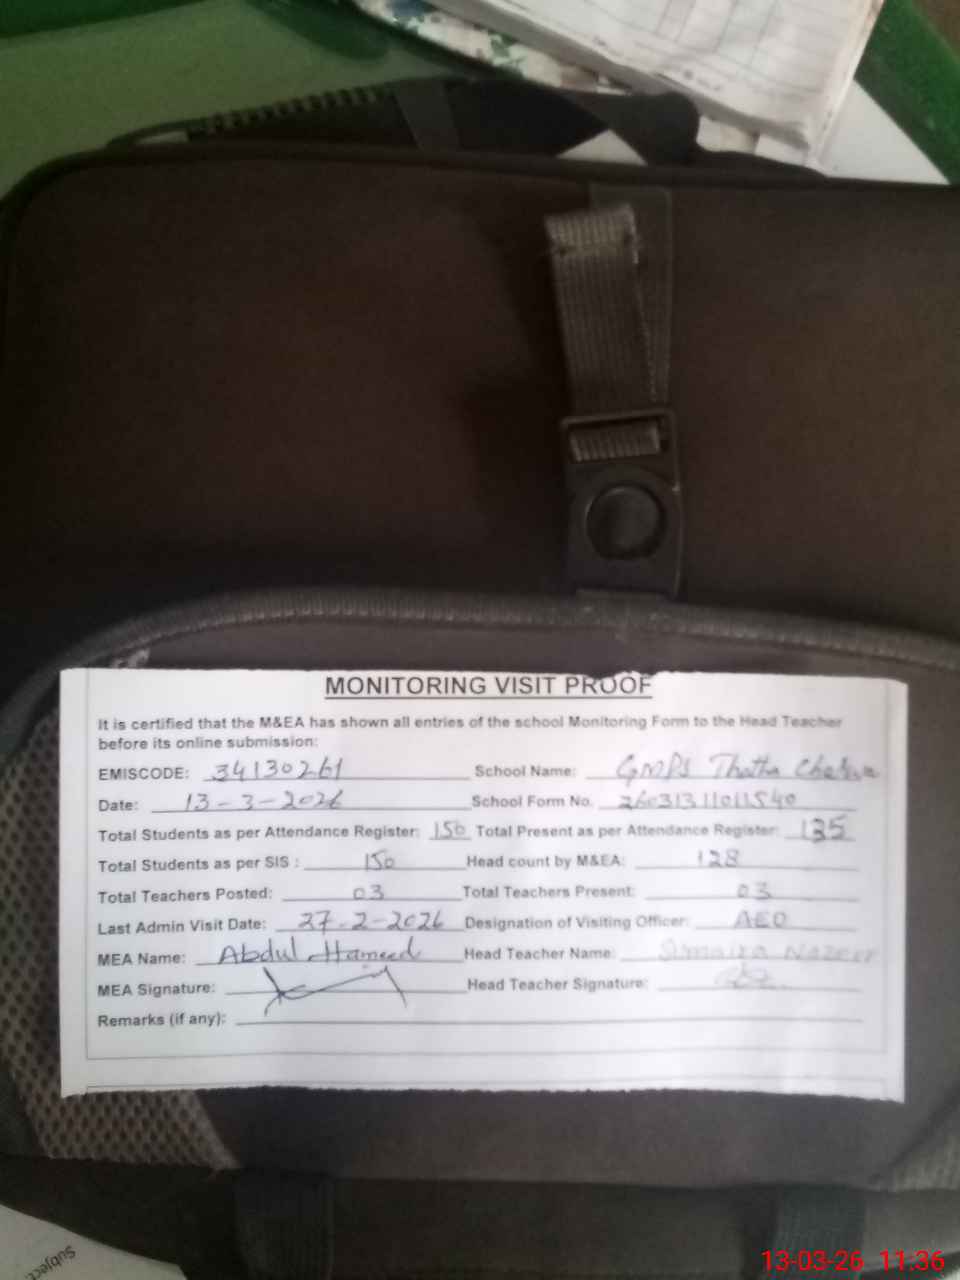 MONITORING VISIT PROOF
It is certified that the M&EA has shown all entries of the school Monitoring Form to the Head Teacher
before its online submission:
EMISCODE: 34130261 School Name: GMPS Thatha
Date: 13-3-2026 School Form No. 26031311011540
Total Students as per Attendance Register: 150 Total Present as per Attendance Register: 135
Total Students as per SIS : 150 Head count by M&EA: 128
Total Teachers Posted: 03 Total Teachers Present: 03
Last Admin Visit Date: 27-2-2026 Designation of Visiting Officer: AEO
MEA Name: Abdul Hameed Head Teacher Name: Nazeer
MEA Signature: Head Teacher Signature:
Remarks (if any):
Subject
13-03-26 11:36